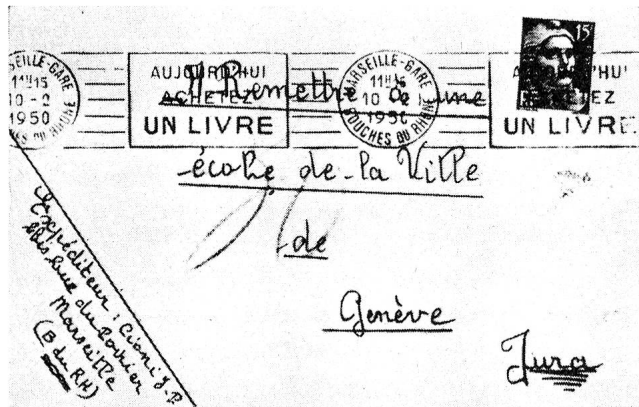 MARSEILLE-GARE
11H15
10-2
1950
BOUCHES DU RHONE
AUJOURD'HUI
ACHETEZ
UN LIVRE
MARSEILLE-GARE
11H15
10-2
1950
BOUCHES DU RHONE
AUJOURD'HUI
ACHETEZ
UN LIVRE
15
A Remettre à une
école de la Ville
de
Genève
Jura
Expéditeur : Cioni J.P.
Rue du
Marseille
(B du RH)